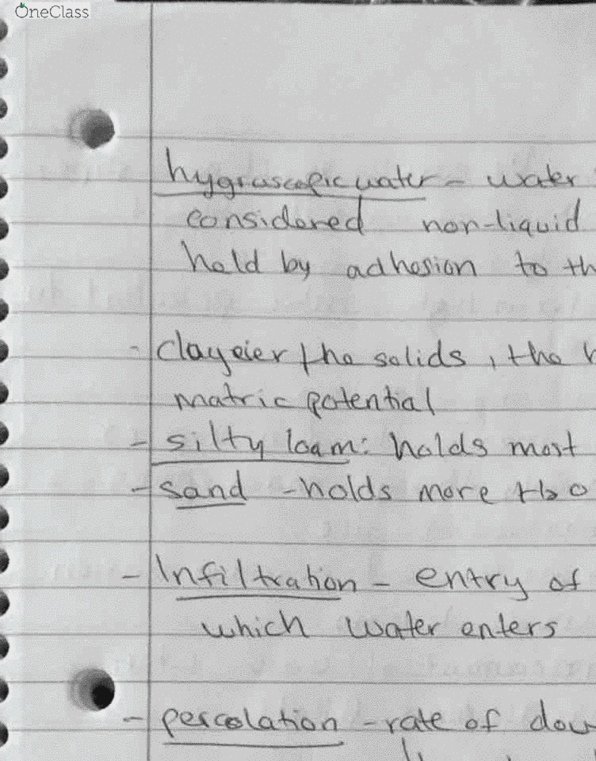 OneClass
hygroscopic water - water
considered non-liquid
held by adhesion to th
- clayeier the solids, the h
matric potential
- silty loam: holds most
- sand - holds more
- Infiltration - entry of
which water enters
- percolation - rate of dow